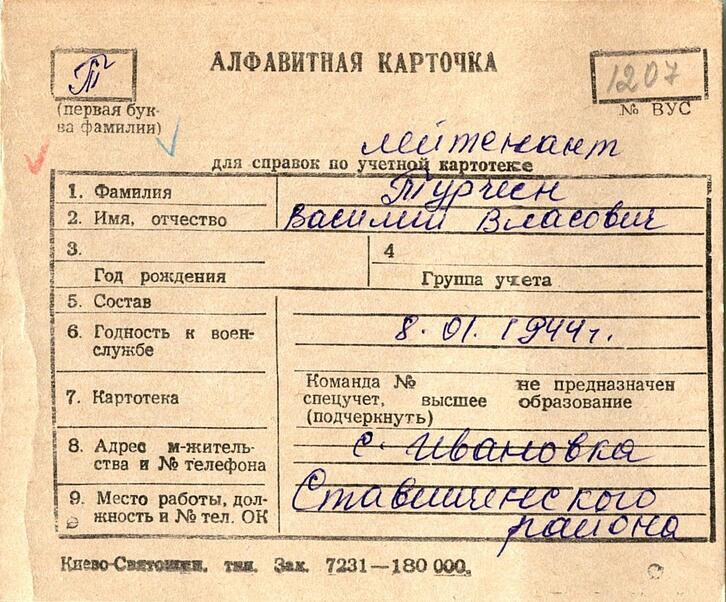 АЛФАВИТНАЯ КАРТОЧКА
Т
1207
(первая бук-
ва фамилии)
№ ВУС
лейтенант
для справок по учетной картотеке
1. Фамилия
Турчен
2. Имя, отчество
Василий Власович
3.
Год рождения
4
Группа учета
5. Состав
6. Годность к воен-
службе
8.01.1944г.
7. Картотека
Команда № не предназначен
спецучет, высшее образование
(подчеркнуть)
8. Адрес м-житель-
ства и № телефона
с. Ивановка
9. Место работы, дол-
жность и № тел. ОК
Ставищенского
района
Киево-Святошин. тип. Зак. 7231—180 000.